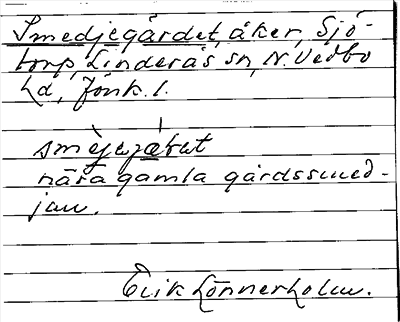 Smedjegärdet, åker, Sjö-
torp, Linderås sn, N. Vedbo
hd, Jönk. l.
nära gamla gårdssmed-
jan.
Erik Lönnerholm.